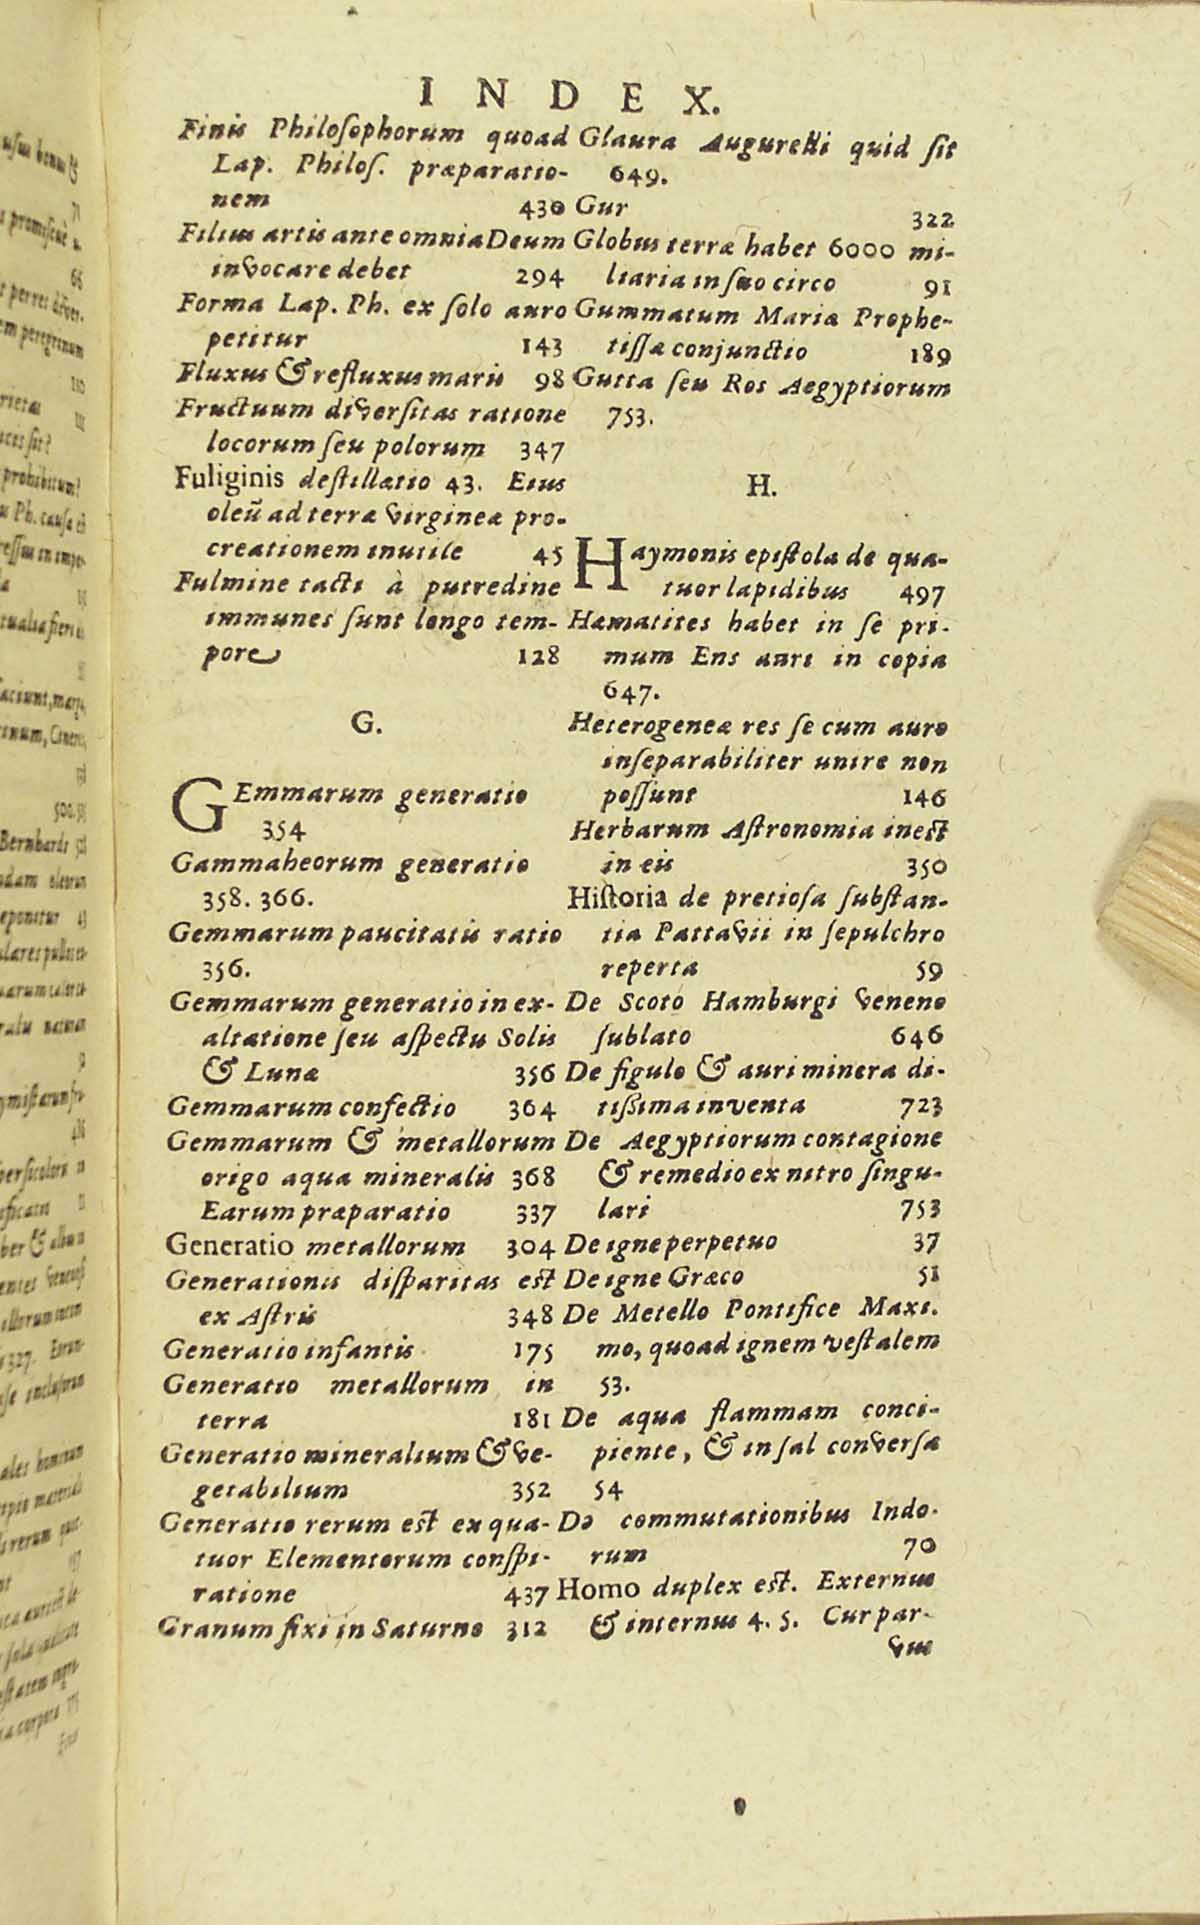 INDEX.
Finis Philosophorum quoad
Lap. Philos. præparatio-
nem 430
Filius artis ante omnia Deum
invocare debet 294
Forma Lap. Ph. ex solo auro
petitur 143
Fluxus & refluxus maris 98
Fructuum diversitas ratione
locorum seu polorum 347
Fuliginis destillatio 43. Eius
oleũ ad terræ virgineæ pro-
creationem inutile 45
Fulmine tacti à putredine
immunes sunt longo tem-
pore 128
G.
GEmmarum generatio
354
Gammaheorum generatio
358. 366.
Gemmarum paucitatis ratio
356.
Gemmarum generatio in ex-
altatione seu aspectu Solis
& Lunæ 356
Gemmarum confectio 364
Gemmarum & metallorum
origo aqua mineralis 368
Earum præparatio 337
Generatio metallorum 304
Generationis disparitas est
ex Astris 348
Generatio infantis 175
Generatio metallorum in
terra 181
Generatio mineralium & ve-
getabilium 352
Generatio rerum est ex qua-
tuor Elementorum conspi-
ratione 437
Granum fixi in Saturno 312
Glaura Augurelli quid sit
649.
Gur 322
Globus terræ habet 6000 mi-
liaria in suo circo 91
Gummatum Mariæ Prophe-
tissæ conjunctio 189
Gutta seu Ros Aegyptiorum
753.
H.
Haymonis epistola de qua-
tuor lapidibus 497
Hæmatites habet in se pri-
mum Ens auri in copia
647.
Heterogeneæ res se cum auro
inseparabiliter unire non
possunt 146
Herbarum Astronomia inest
in eis 350
Historia de pretiosa substan-
tia Pattavii in sepulchro
reperta 59
De Scoto Hamburgi veneno
sublato 646
De figulo & auri minera di-
tißima inventa 723
De Aegyptiorum contagione
& remedio ex nitro singu-
lari 753
De igne perpetuo 37
De igne Græco 51
De Metello Pontifice Maxi.
mo, quoad ignem vestalem
53.
De aqua flammam conci-
piente, & in sal conversa
54
De commutationibus Indo-
rum 70
Homo duplex est. Externus
& internus 4. 5. Cur par-
vus